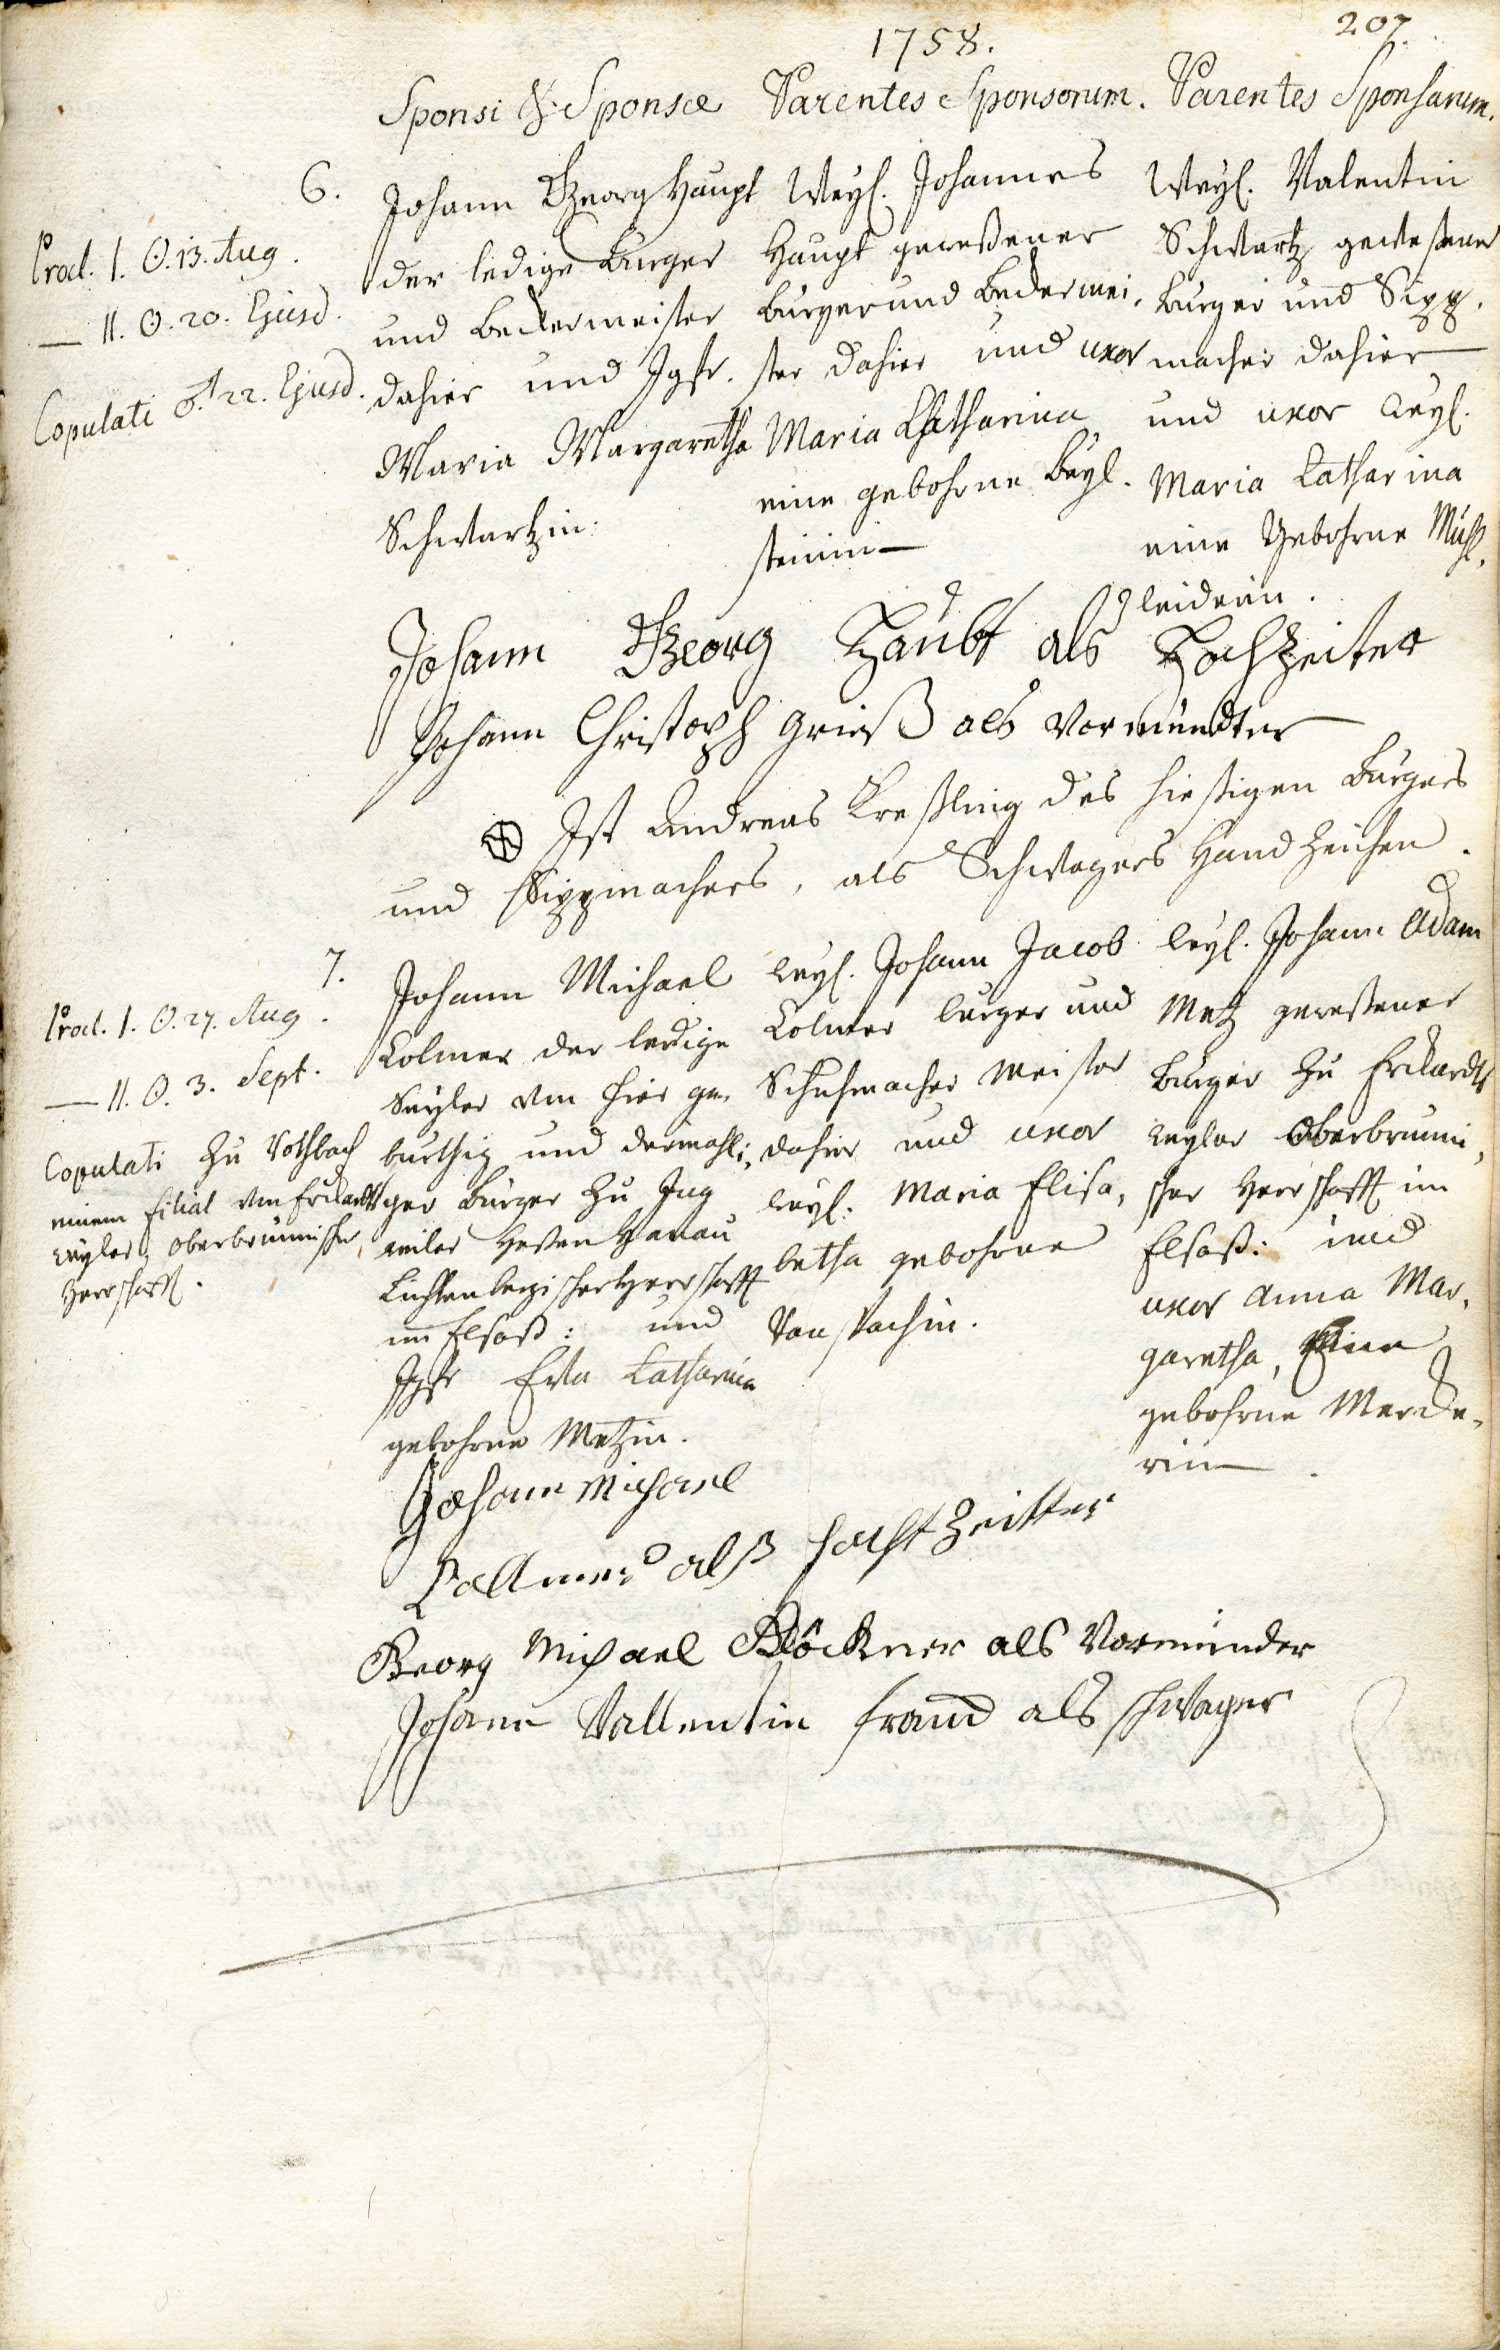 1758.
207.
Sponsi & Sponsæ
Parentes Sponsorum.
Parentes Sponsarum.
6.
Procl. I. ☉. 13. Aug.
— II. ☉. 20. Ejusd.
Copulati ♂. 22. Ejusd.
Johann Georg Haupt
der ledige Burger
und Beckermeister
dahier und Jgfr.
Maria Margaretha
Schwartzin:
Weyl. Johannes
Haupt geweßener
Burger und Beckermei-
ster dahier und uxor
Maria Catharina
eine gebohrne Beyl-
steinin
Weyl. Valentin
Schwartz geweßener
Burger und Sipp-
macher dahier
und uxor weyl.
Maria Catharina
eine Gebohrne Mühl-
leiderin.
Johann Georg Haubt als Hochzeiter
Johann Christoph Grieß als Vormündter
Ist Andreas Kreßling des hiesigen Burgers
und Sippmachers, als Schwagers Handzeichen.
7.
Procl. I. ☉. 27. Aug.
— II. ☉. 3. Sept.
Copulati zu Rothbach
einem Filial von
weyler, Oberbrunnischer
Herrschafft.
Johann Michael
Colmer der ledige
Seyler von hier ge-
bürthig und dermahli-
ger Burger zu Ing
weiler Heßen Hanau
Lichtenbergischer Herrschafft
im Elsaß: und
Jgfr Eva Catharina
gebohrne Metzin.
weyl. Johann Jacob
Colmer Burger und
Schuhmacher Meister
dahier und uxor
weyl. Maria Elisa-
betha gebohrne
weyl. Johann Adam
Metz geweßener
Burger zu
weyler Oberbrunni-
scher Herrschafft im
Elsaß: und
uxor Anna Mar-
garetha, Eine
gebohrne Mercke-
rin
Johann Michael
Collmer alß hochtzeitter
Georg Michael Böckner als Vormünder
Johann Vallentin als schwager